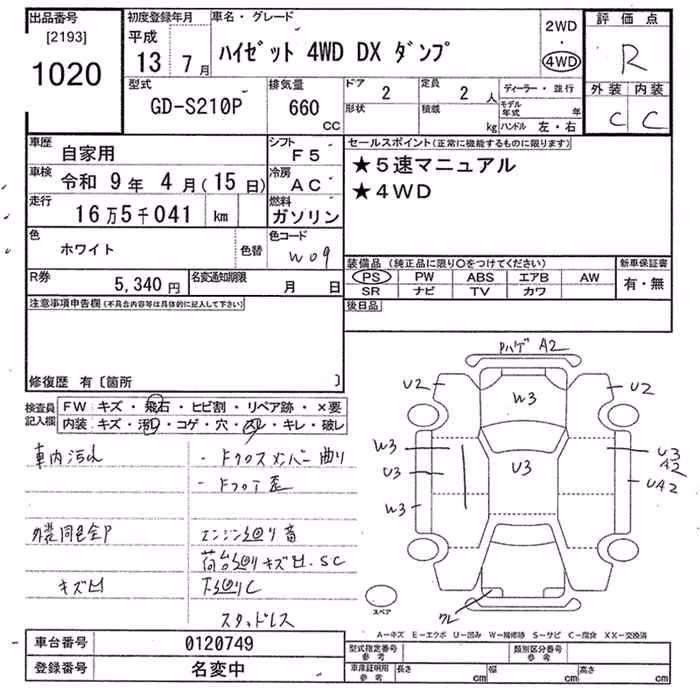 出品番号
[2193]
1020
初度登録年月
平成
13 7月
車名・グレード
ハイゼット 4WD DX ダンプ
2WD
・
4WD
評価点
R
外装 内装
C C
型式
GD-S210P
排気量
660
CC
ドア
2
定員
2 人
形状
積載
kg
ディーラー・並行
モデル年式 年
ハンドル 左・右
車歴
自家用
シフト
F5
車検
令和 9年 4月(15日)
冷房
AC
走行
16万5千041 km
燃料
ガソリン
色
ホワイト
色替
色コード
W09
R券
5,340円
名変通知期限
月 日
セールスポイント(正常に機能するものに限ります)
★5速マニュアル
★4WD
装備品(純正品に限り○をつけてください)
PS PW ABS エアB AW
SR ナビ TV カワ
新車保証書
有・無
後日品
注意事項申告欄(不具合内容等は具体的に記入して下さい)
修復歴 有〔箇所 〕
検査員
記入欄
FW キズ・飛石・ヒビ割・リペア跡・×要
内装 キズ・汚レ・コゲ・穴・スレ・キレ・破レ
車内汚れ
・Fクロスメンバー曲り
・Fフロア歪
外装同色全P
エンジン廻り音
荷台廻りキズ凹・SC
キズ凹
下廻りC
スタッドレス
Pハゲ A2
U2
U2
W3
W3
U3
U3
U3
A2
UA2
W3
ワレ
スペア
A―キズ E―エクボ U―凹み W―補修跡 S―サビ C―腐食 XX―交換済
車台番号
0120749
登録番号
名変中
型式指定番号
参考
類別区分番号
参考
車庫証明用
参考
長さ cm
幅 cm
高さ cm